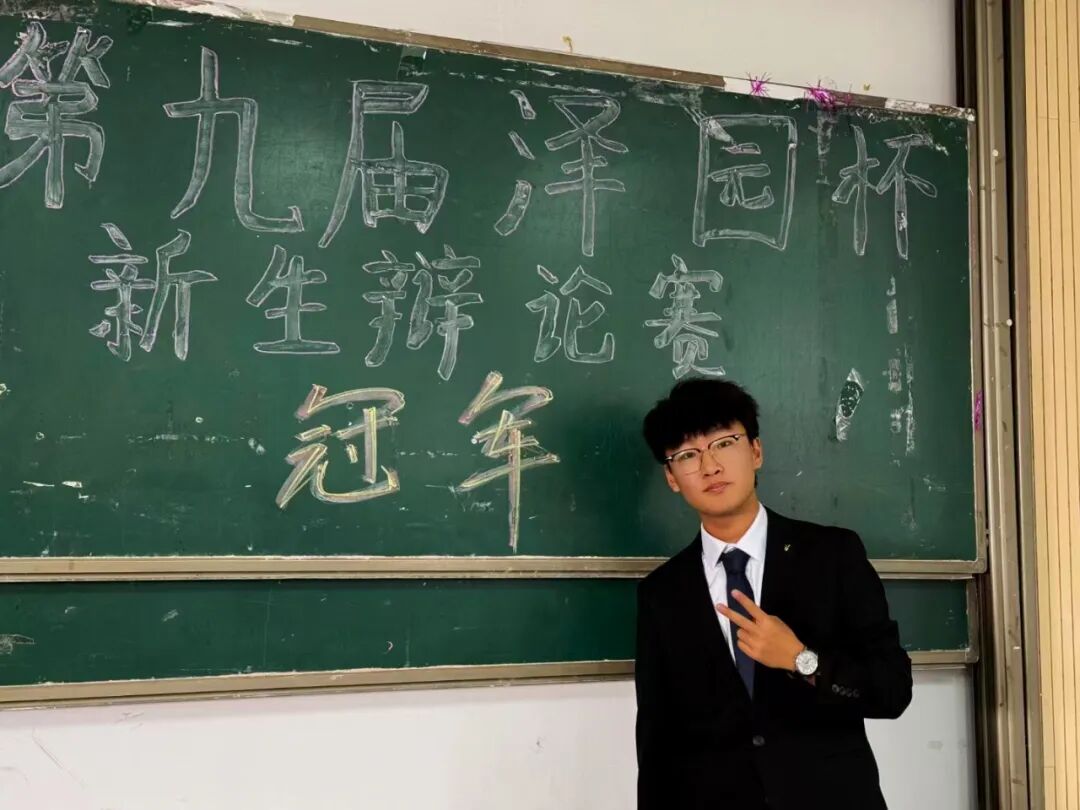 第九届泽园杯
新生辩论赛
冠军